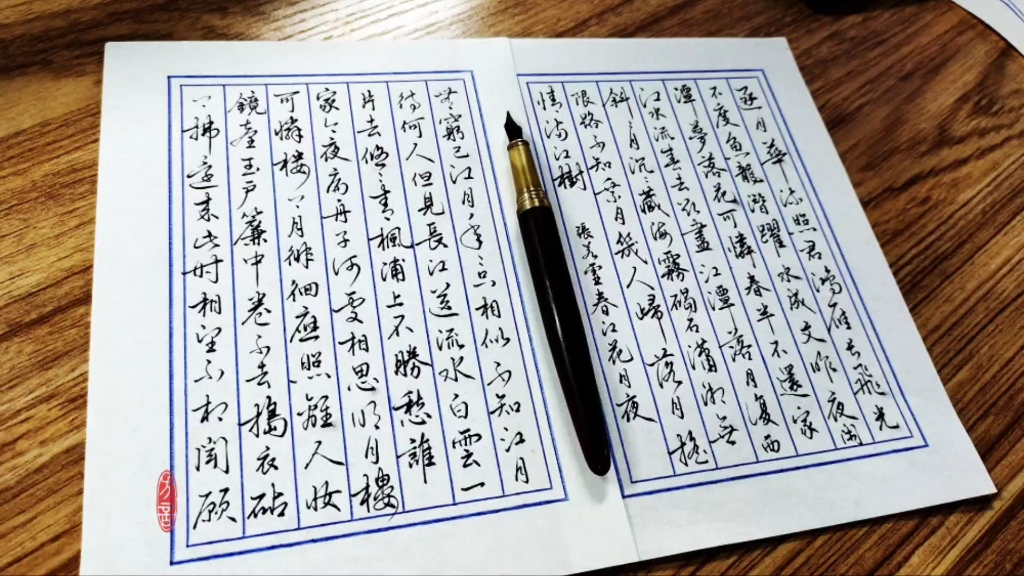 無窮已江月年々只相似不知江月
待何人但見長江送流水白雲一
片去悠々青楓浦上不勝愁誰
家今夜扁舟子何處相思明月樓
可憐樓上月徘徊應照離人妝
鏡臺玉戶簾中卷不去搗衣砧
上拂還來此時相望不相聞願
逐月華流照君鴻雁長飛光
不度魚龍潛躍水成文昨夜閑
潭夢落花可憐春半不還家
江水流春去欲盡江潭落月復西
斜々月沉々藏海霧碣石瀟湘無
限路不知乘月幾人歸落月搖
情滿江樹
張若虛春江花月夜